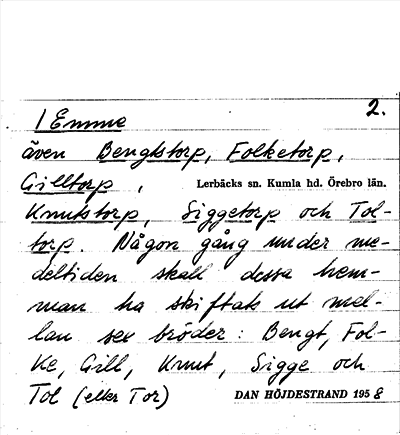 2.
1 Emme
även Bengtstorp, Folketorp,
Gilltorp,
Lerbäcks sn. Kumla hd. Örebro län.
Knutstorp, Siggetorp och Tol-
torp. Någon gång under me-
deltiden skall dessa hem-
man ha skiftats ut mel-
lan sex bröder: Bengt, Fol-
ke, Gill, Knut, Sigge och
Tol (eller Tor)
DAN HÖJDESTRAND 1958